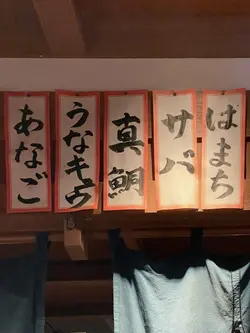 はまち
サバ
真鯛
うなぎ
あなご